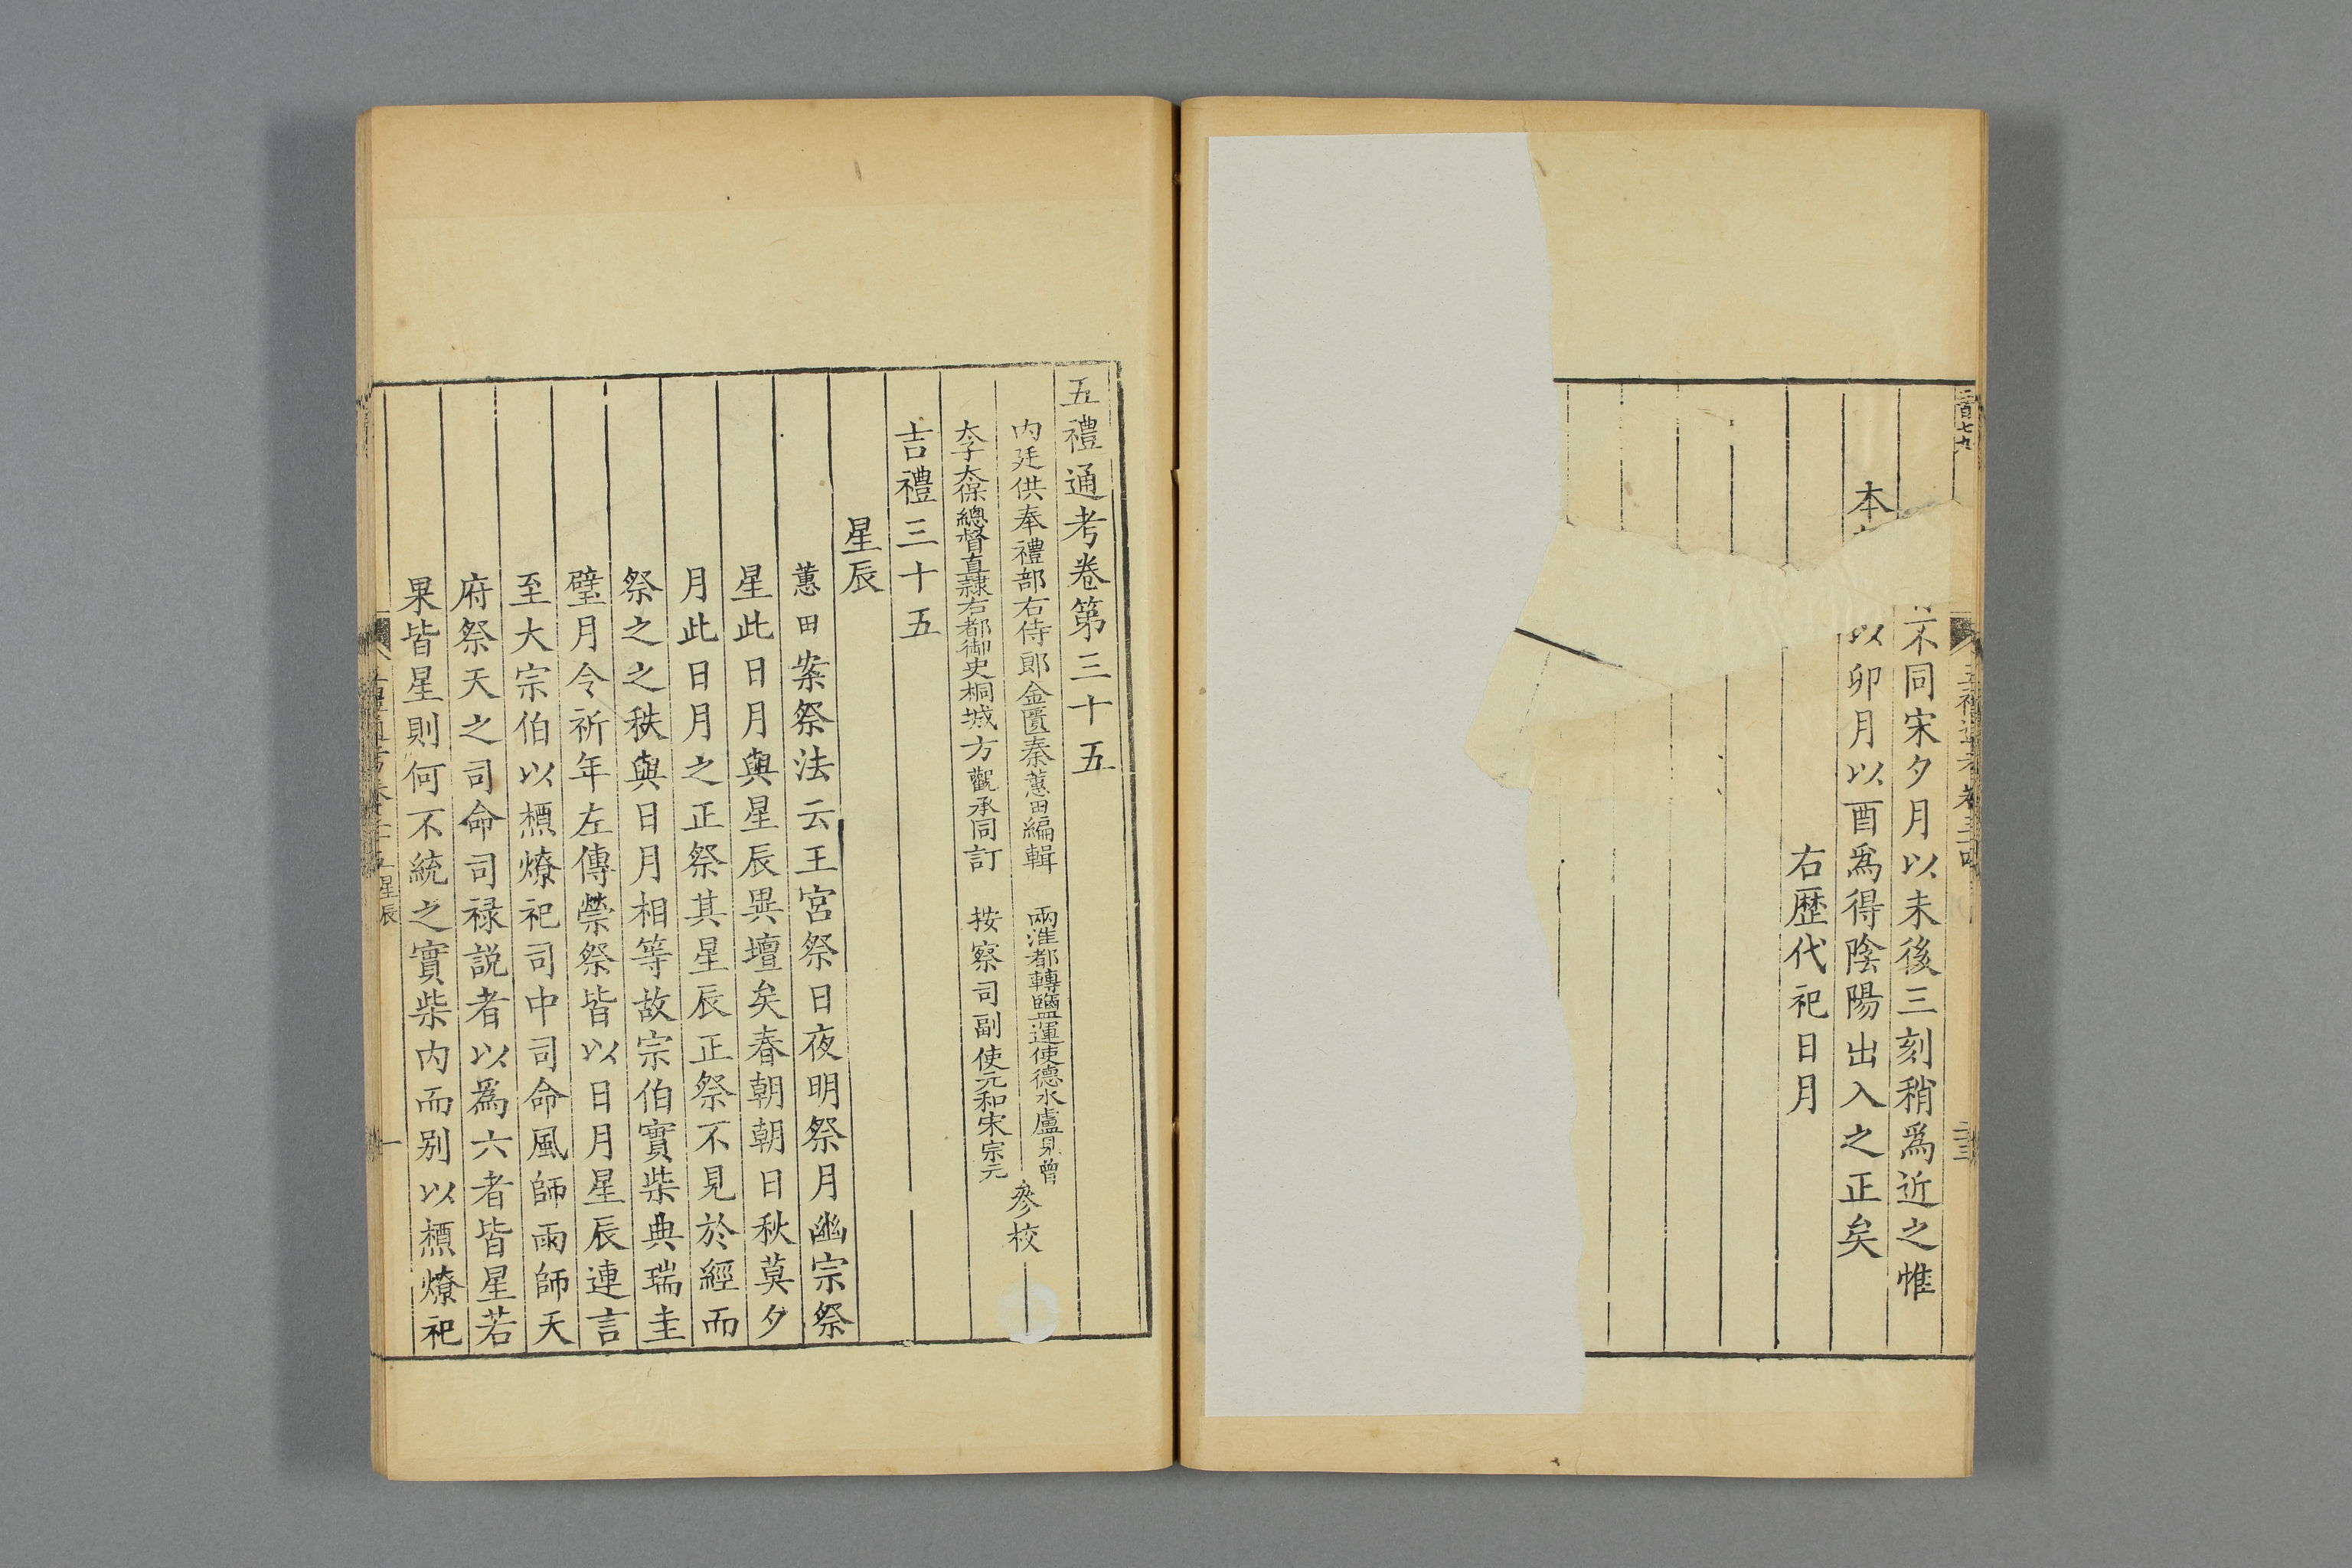 二百七九
不同宋夕月以未後三刻稍爲近之惟
本
以卯月以酉爲得陰陽出入之正矣
右歷代祀日月
五禮通考卷三十四
五禮通考卷第三十五
内廷供奉禮部右侍郎金匱秦蕙田編輯
兩淮都轉鹽運使德水盧見曾
太子太保總督直隷右都御史桐城方觀承同訂
按察司副使元和宋宗元
參校
吉禮三十五
星辰
蕙田案祭法云王宮祭日夜明祭月幽宗祭
星此日月與星辰異壇矣春朝朝日秋莫夕
月此日月之正祭其星辰正祭不見於經而
祭之之秩與日月相等故宗伯實柴典瑞圭
璧月令祈年左傳禜祭皆以日月星辰連言
至大宗伯以槱燎祀司中司命風師雨師天
府祭天之司命司禄説者以爲六者皆星若
果皆星則何不統之實柴内而别以槱燎祀
星辰
一